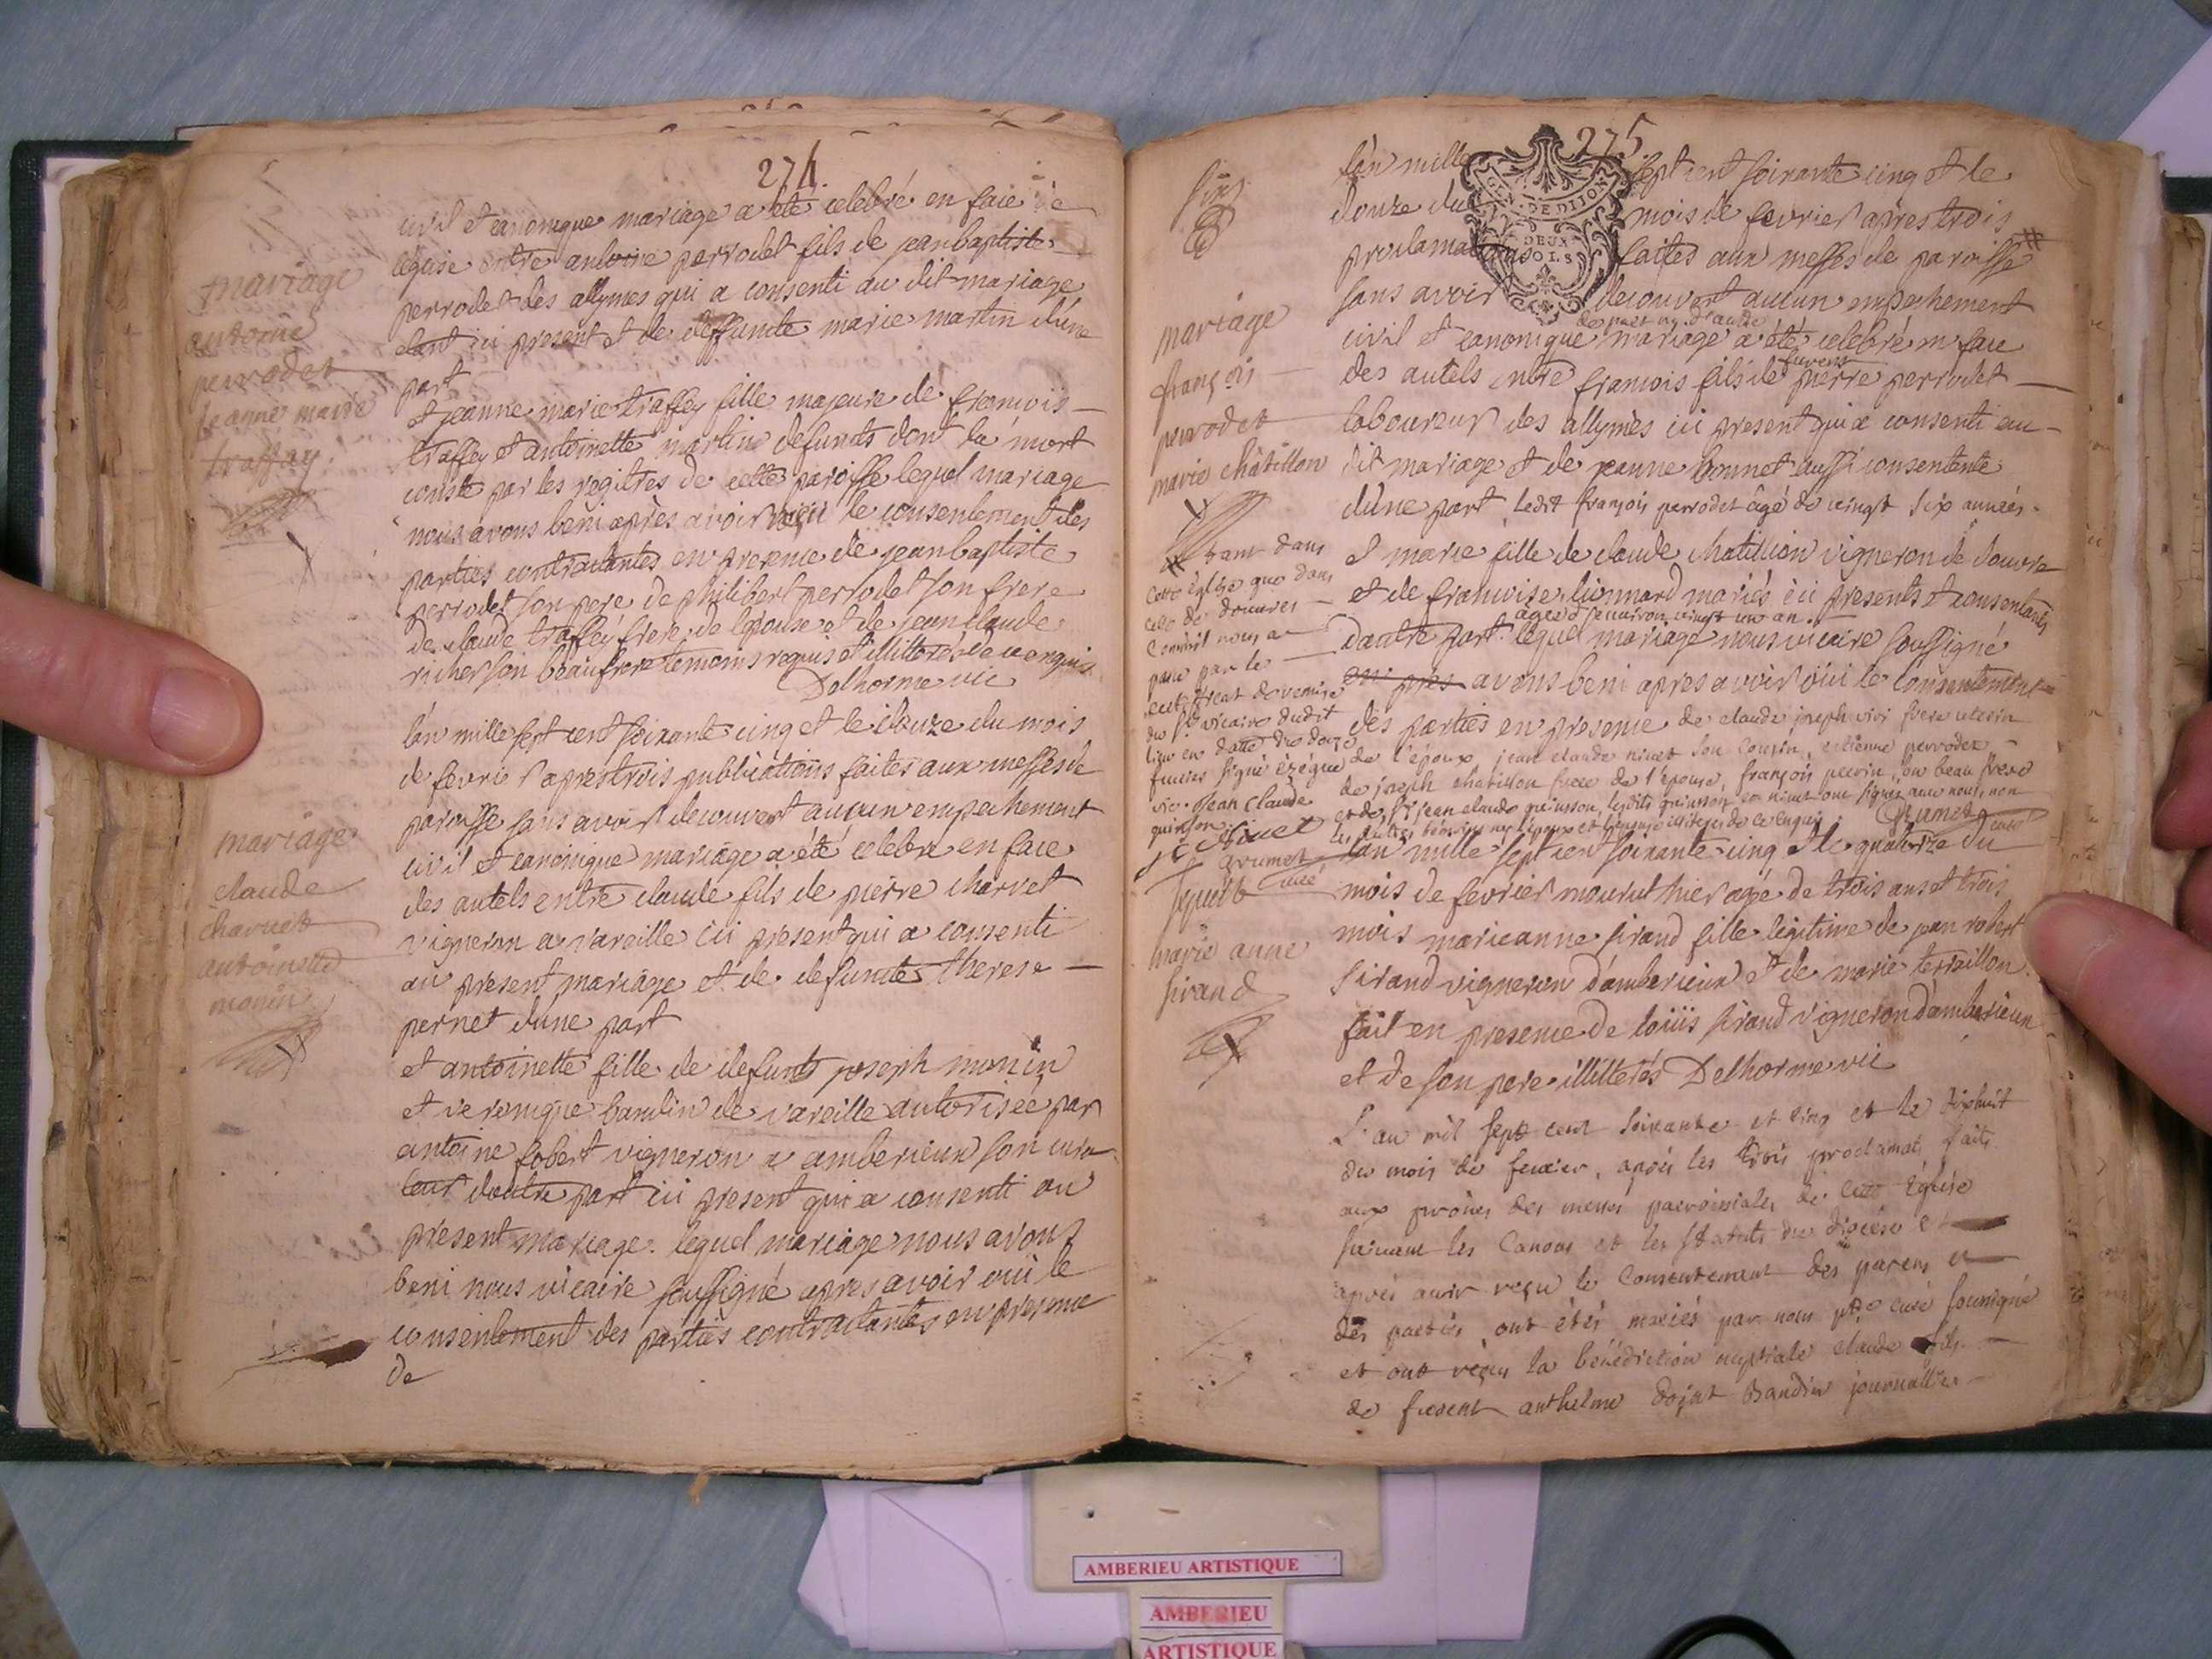 274
civil et canonique mariage a été celebré en face de
leglise entre antoine perrodet fils de jean baptiste
perrodet des allymes qui a consenti au dit mariage
etant ici present et de deffunte marie martin d'une
part
mariage
antoine
perrodet
jeanne marie
traffay
et jeanne marie traffey fille majeure de francois
traffey et antoinette martin defunts dont la mort
conste par les registres de cette paroisse lequel mariage
nous avons beni après avoir le consentement des
parties contractantes en presence de jean baptiste
perrodet son pere de philibert perrodet son frere
de claude traffey frere de lepouse et de jean claude
richer son beaufrere temoins requis et illitterés de ce enquis
Delhorme vic
l'an mille sept cent soixante cinq et le douze du mois
de fevrier apres trois publications faites aux messes de
paroisse sans avoir decouvert aucun empechement
civil et canonique mariage a été celebré en face
des autels entre claude fils de pierre charvet
vigneron a vareille ici present qui a consenti
au present mariage et de defunte therese
pernet d'une part
mariage
claude
charvet
antoinette
monin
et antoinette fille de defunts joseph monin
et veronique baudin de vareille autorisée par
antoine robert vigneron a amberieux son cura
teur d'autre part ici present qui a consenti au
present mariage. lequel mariage nous avons
beni nous vicaire soussigné apres avoir oui le
consentement des parties contractantes en presence
de
275
GEN. DE DIJON
DEUX
SOLS
l'an mille sept cent soixante cinq et le
douze du mois de fevrier apres trois
proclamations faites aux messes de paroisse #
sans avoir decouvert aucun empechement
civil et canonique mariage a été celebré en face
des autels entre francois fils de pierre perrodet
laboureur des allymes ici present qui a consenti au
dit mariage et de jeanne bonnet aussi consentente
d'une part ledit françois perrodet âgé de vingt six années.
mariage
françois
perrodet
marie châtillon
et marie fille de claude chatillion vigneron de douvre
et de francoise lionnard mariés ici presents et consentants
âgée d'environ vingt un an.
dautre part. lequel mariage nous vicaire soussigné
avons beni apres avoir oüi le consentement
des parties en presence de claude joseph frere uterin
de l'époux, jean claude nivet son cousin, etienne perrodet
de joseph chatillon frere de l'épouse, françois perrin son beau frere
et de Sr jean claude quinson, lesdits quinson et nivet ont signés avec nous, non
les autres temoins ny l'époux et l'épouse illiterés de ce enquis.
Grumet curé
# tant dans
cette église que dans
celle de douvres
comme il nous a
paru par le
certificat de remise
du Sr vicaire dudit
lieu en datte du douze
fevrier signé ezégue
vic. Jean Claude
quinson
J C Nivet
Grumet
curé
l'an mille sept cent soixante cinq et le quatorze du
mois de fevrier mourut hier agée de trois ans et trois
mois marieanne sirand fille legitime de jean robert
sirand vigneron d'amberieux et de marie terraillon.
fait en presence de loüis sirand vigneron d'amberieux
et de son pere illitterés Delhorme vic
marie anne
sirand
L'an mil sept cent soixante et cinq et le dixhuit
du mois de fevrier, apres les trois proclamat. faits
aux prônes des messes paroissiales de cette église
suivant les canons et les statuts du diocèse et
aprés avoir reçu le consentement des parens et
des parties, ont étés mariés par nous ptre curé soussigné
et ont reçu la bénédiction nuptiale claude fils
de fusent anthelme dojat Baudin journallier
AMBERIEU ARTISTIQUE
AMBERIEU
ARTISTIQUE